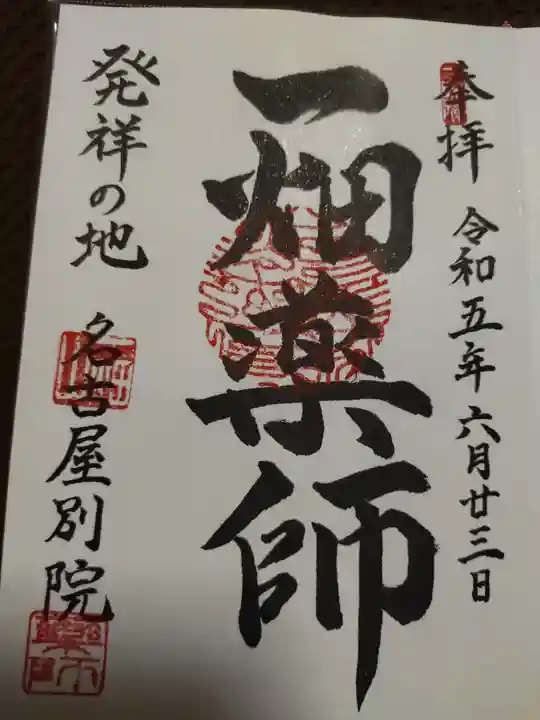 奉拝 令和五年六月廿三日
一畑薬師
発祥の地 名古屋別院